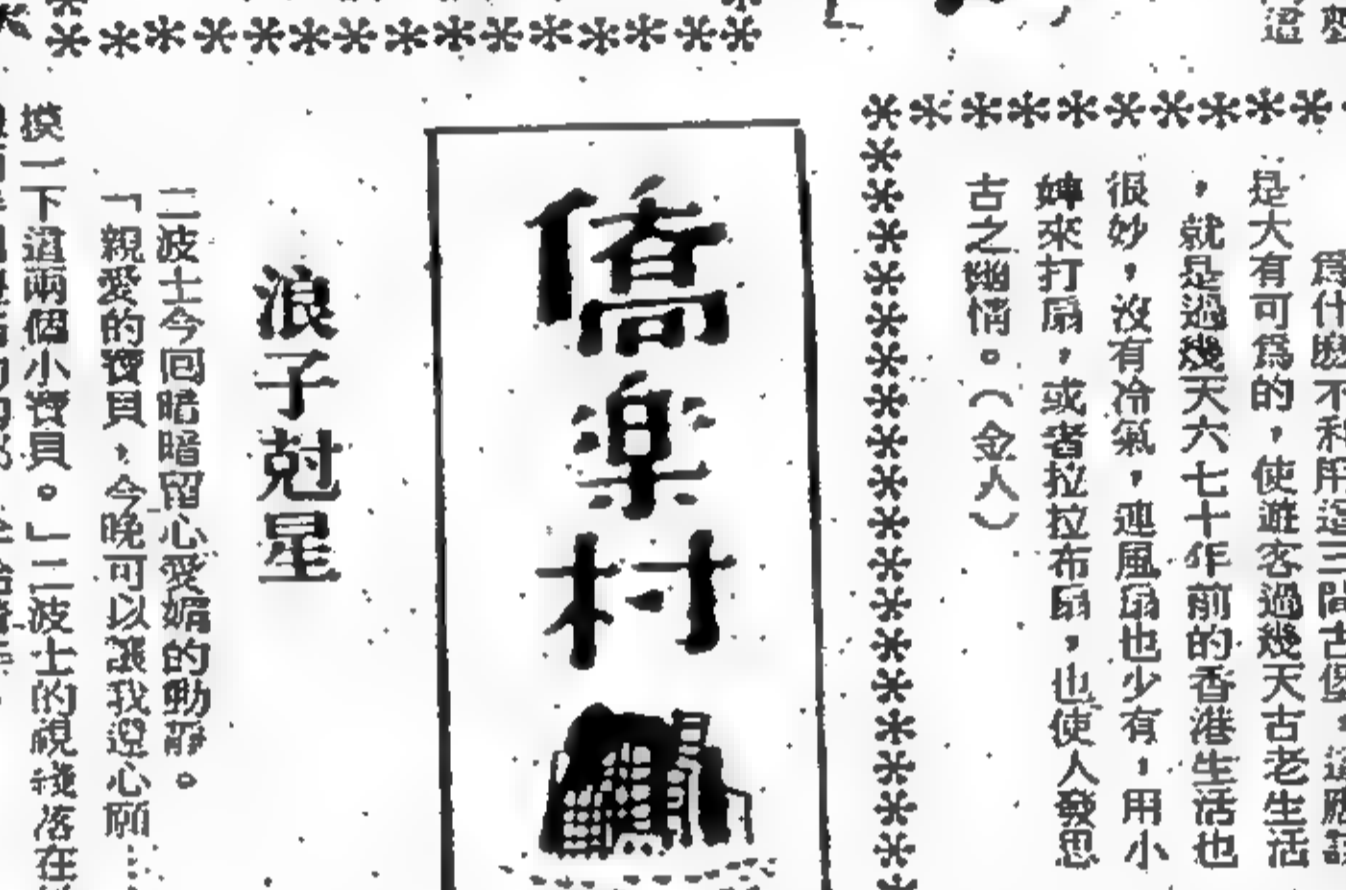 為什麽不利用這三間古堡,這應該
是大有可為的,使遊客過幾天古老生活
,就是過幾天六七十年前的香港生活也
很妙,沒有冷氣,連風扇也少有,用小
婢來打扇,或者拉拉布扇,也使人發思
古之幽情。(金人)
僑楽村
浪子尅星
二波士今囘暗暗留心愛娟的動靜。
「親愛的寶貝,今晚可以讓我還心願⋯
摸一下這兩個小寶貝。」二波士的視綫落在